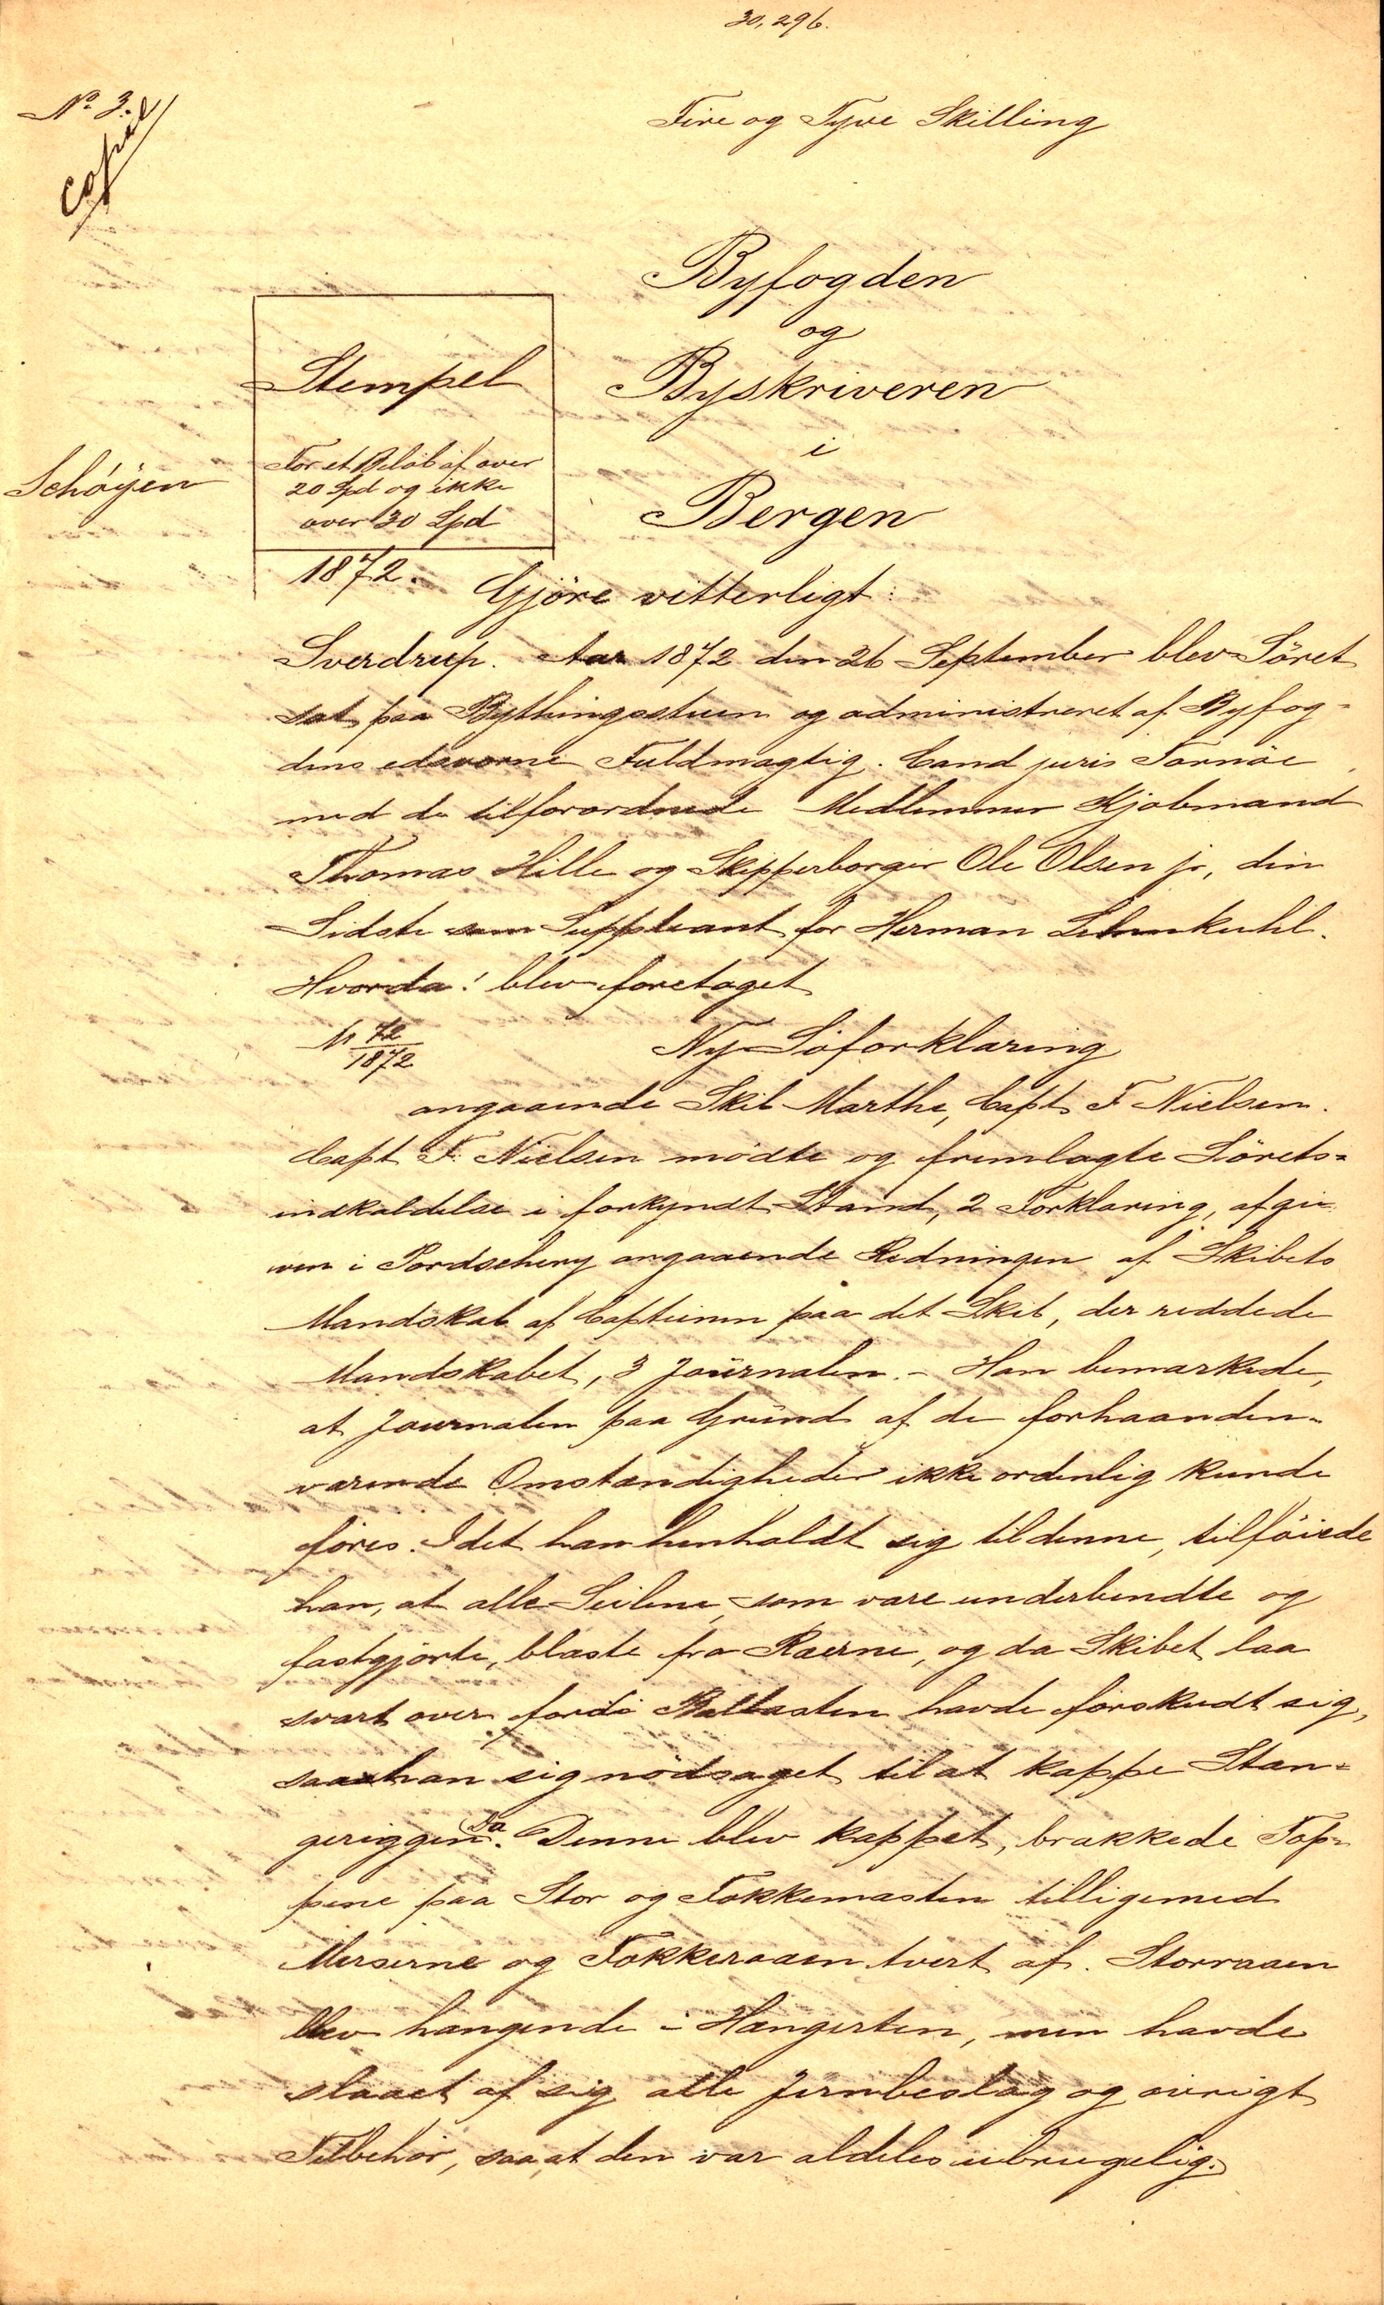 30,296.
No 3.
Copie
Fire og Tyve Skilling
Byfogden
og
Byskriveren
i
Bergen
Stempel
For et Beløb af over
20 Spd og ikke
over 30 Spd
1872.
Schøyen
Gjöre vitterligt:
Sverdrup. Aar 1872 den 26 September blev Söret
sat paa Bythingsstuen og administreret af Byfog=
dens edsvorne Fuldmægtig. Cand juris Tornöe
med de tilforordnede Medlemmer Kjöbmand
Thomas Hille og Skipperborger Ole Olsen jr, den
Sidste som Suppleant for Herman Lehmkuhl.
Hvorda! blev foretaget
Nr 72/1872
Ny Söforklaring
angaaende Skib Marthe, Capt F Nielsen.
Capt F. Nielsen mödte og fremlagte Sörets=
indkaldelse i forkyndt Stand, 2 Forklaring, afgi
ven i angaaende Redningen af Skibets
Mandskab af Capteinen paa det Skib, der reddede
Mandskabet, 3 Journalen. - Han bemærkede,
at Journalen paa Grund af de forhaanden=
værende Omstændigheder ikke ordenlig kunde
föres. Idet han henholdt sig til denne, tilföiede
han, at alle Seilene, som vare underbendte og
fastgjorte, blæste fra Ræerne, og da Skibet laa
svært over fordi Ballasten havde forskudt sig,
saa han sig nödsaget til at kappe Stæn=
geriggen. Da Denne blev kappet, brækkede Top=
pene paa Stor og Fokkemasten tilligemed
Merserne og Fokkeraaen tvert af. Storraaen
blev hængende i Hængerten, men havde
slaaet af sig alle Jernbeslag og övrigt
Tilbehör, saa at den var aldeles ubrugelig.